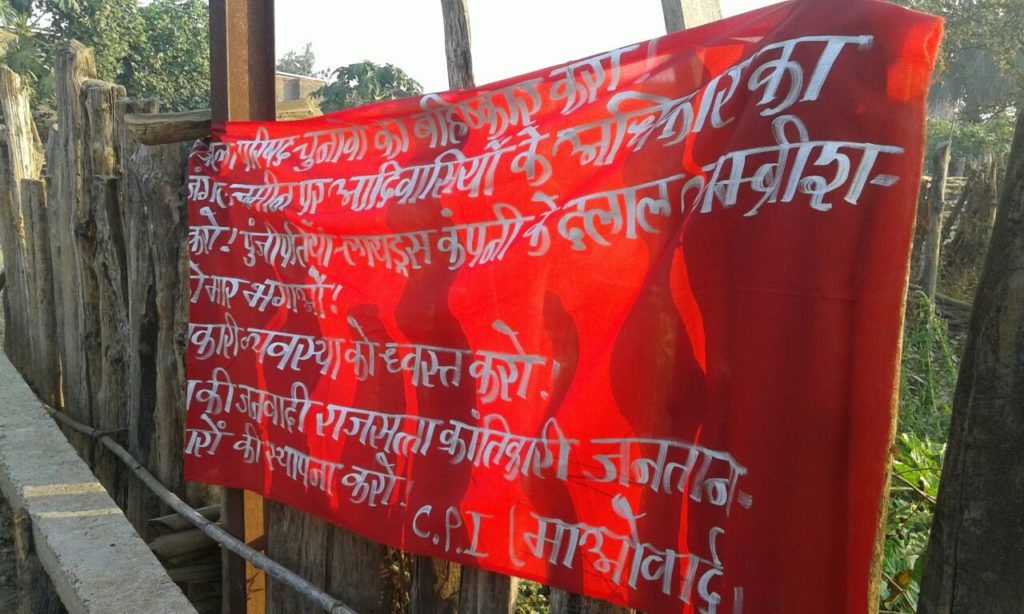 जिला परिषद चुनावों का बहिष्कार करो!
जंगल-जमीन पर आदिवासियों के अधिकार का
करो! पुंजीपतियों-लायड्स कंपनी के दलाल
को मार भगाओं!
व्यवस्था को ध्वस्त करो!
की जनवादी राजसत्ता क्रांतिकारी जनतान-
की स्थापना करो!
C.P.I (माओवादी